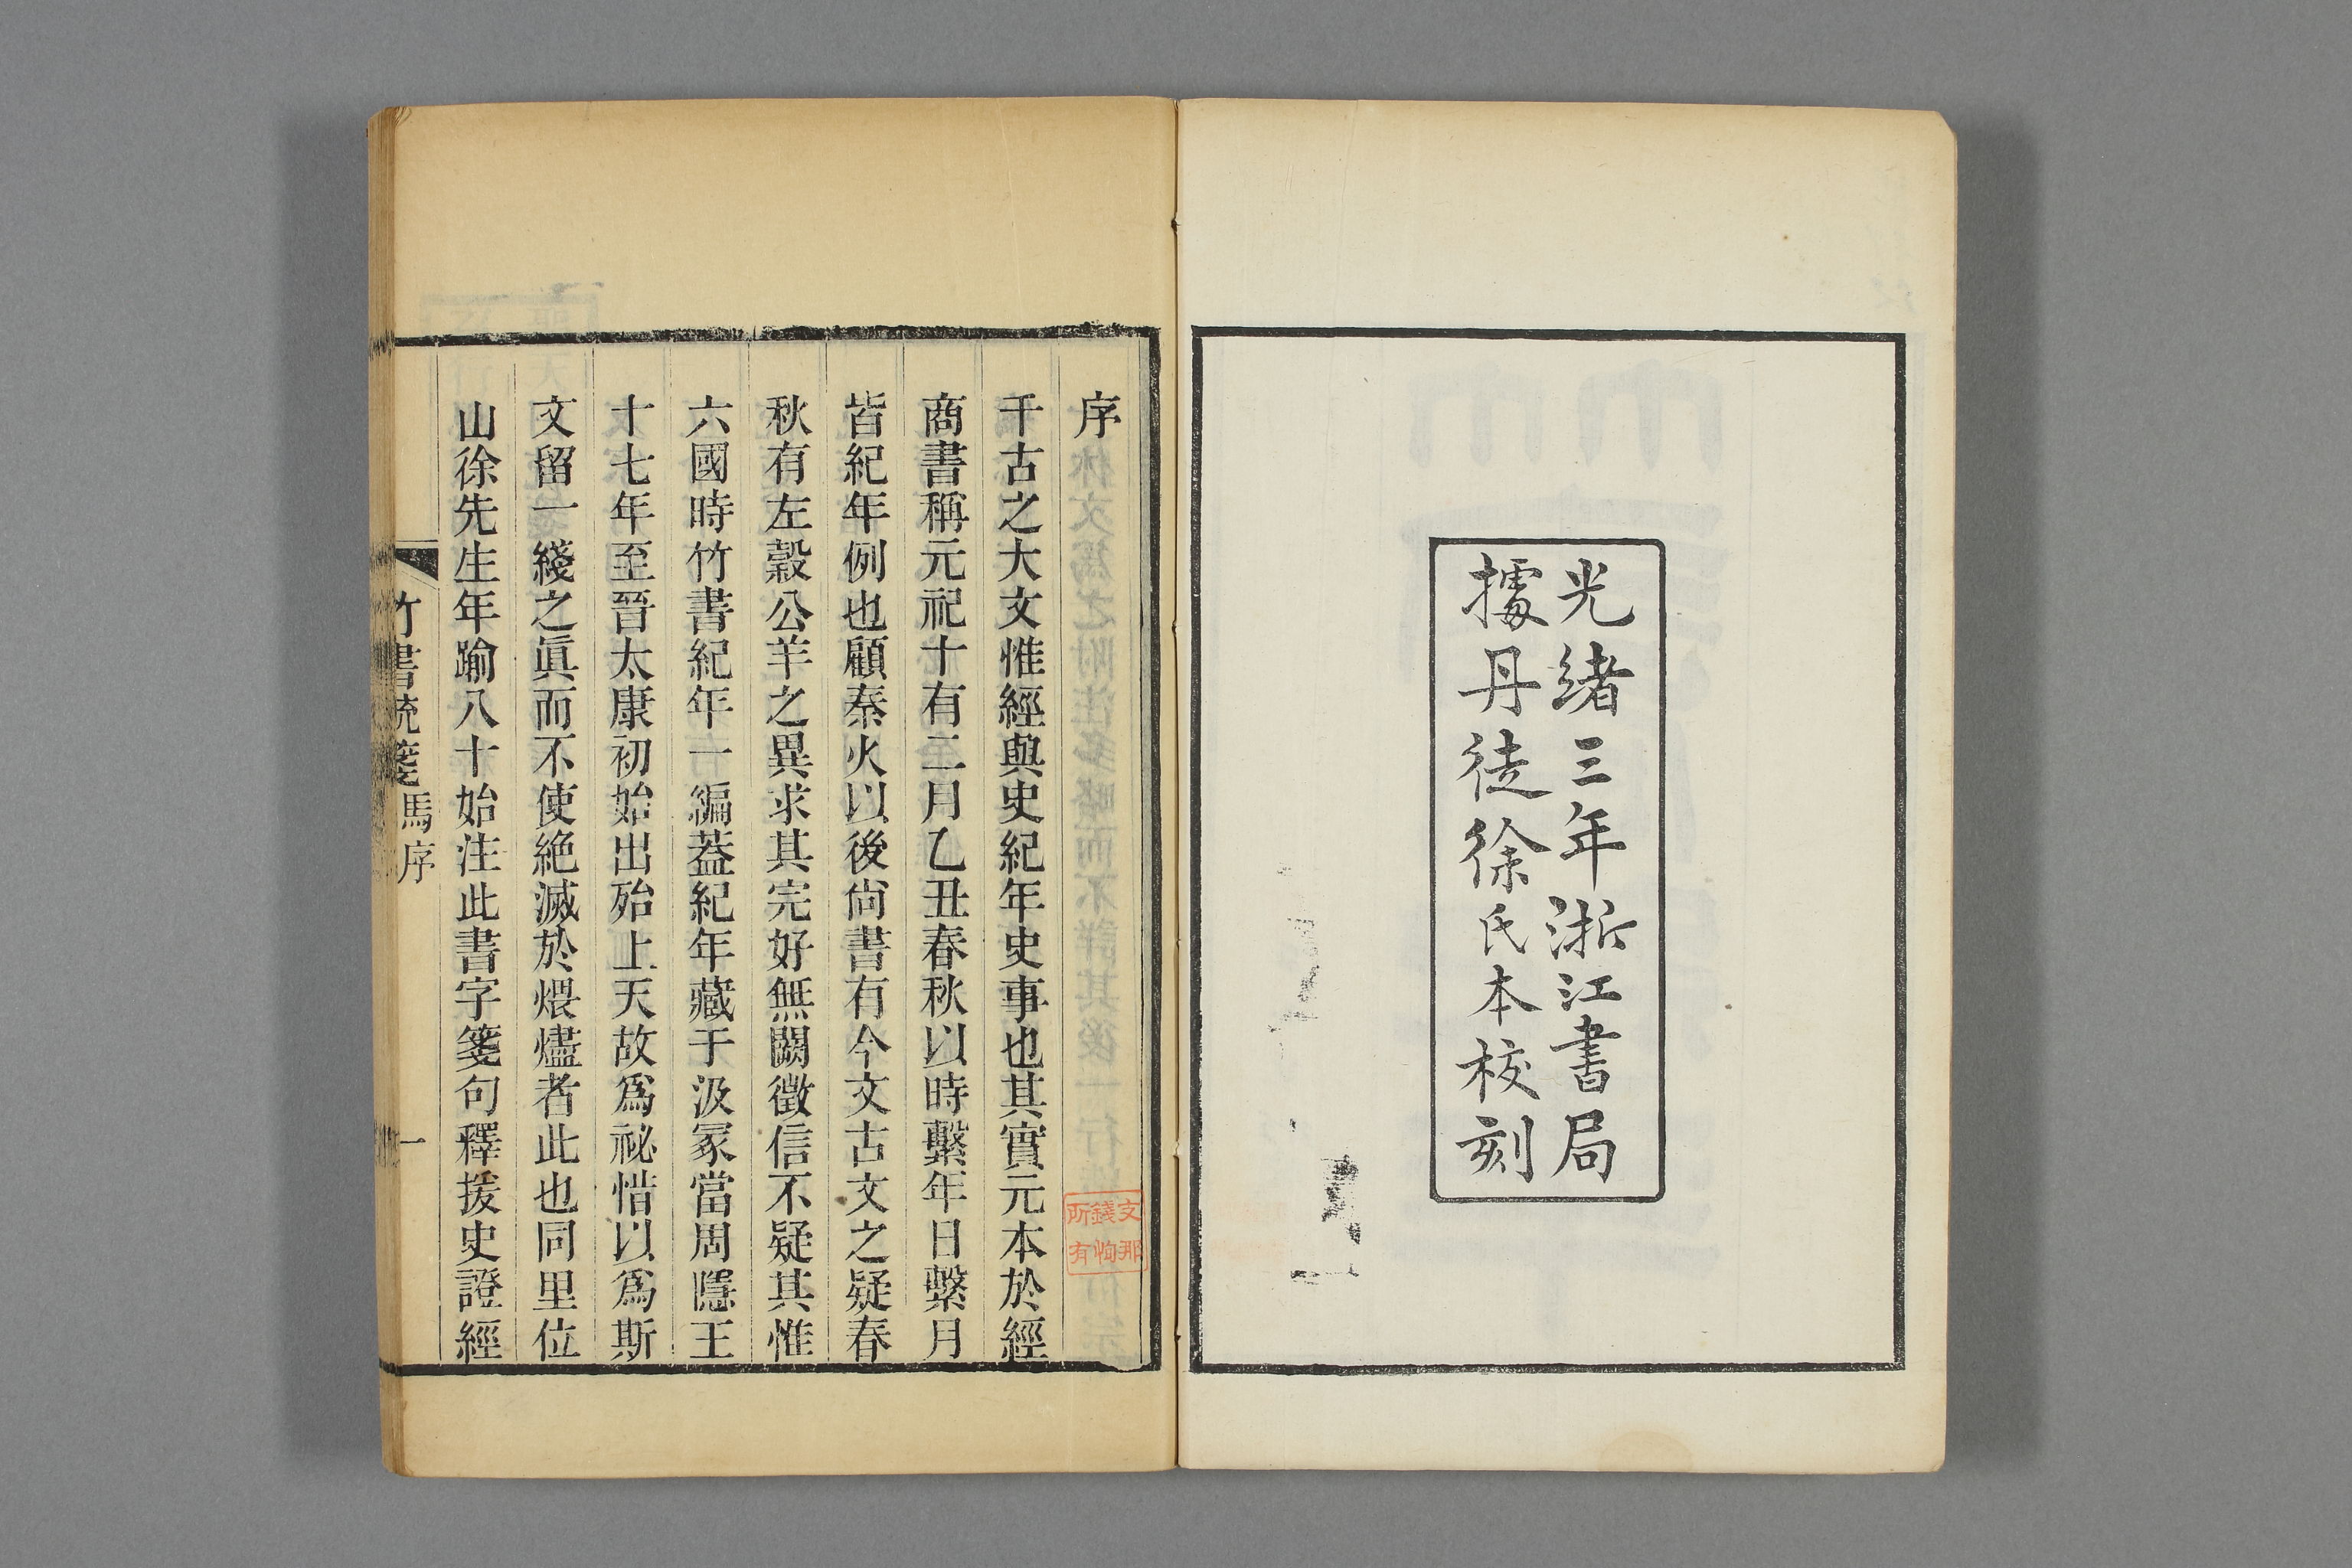 光緒三年浙江書局
據丹徒徐氏本校刻
序
千古之大文惟經與史紀年史事也其實元本於經
商書稱元祀十有二月乙丑春秋以時繫年日繫月
皆紀年例也顧秦火以後尙書有今文古文之疑春
秋有左穀公羊之異求其完好無闕徵信不疑其惟
六國時竹書紀年一編葢紀年藏于汲冢當周隱王
十七年至晉太康初始出殆上天故爲祕惜以爲斯
文留一綫之眞而不使絶滅於煨燼者此也同里位
山徐先生年踰八十始注此書字箋句釋援史證經
竹書統箋 馬序 一
支那
錢恂
所有